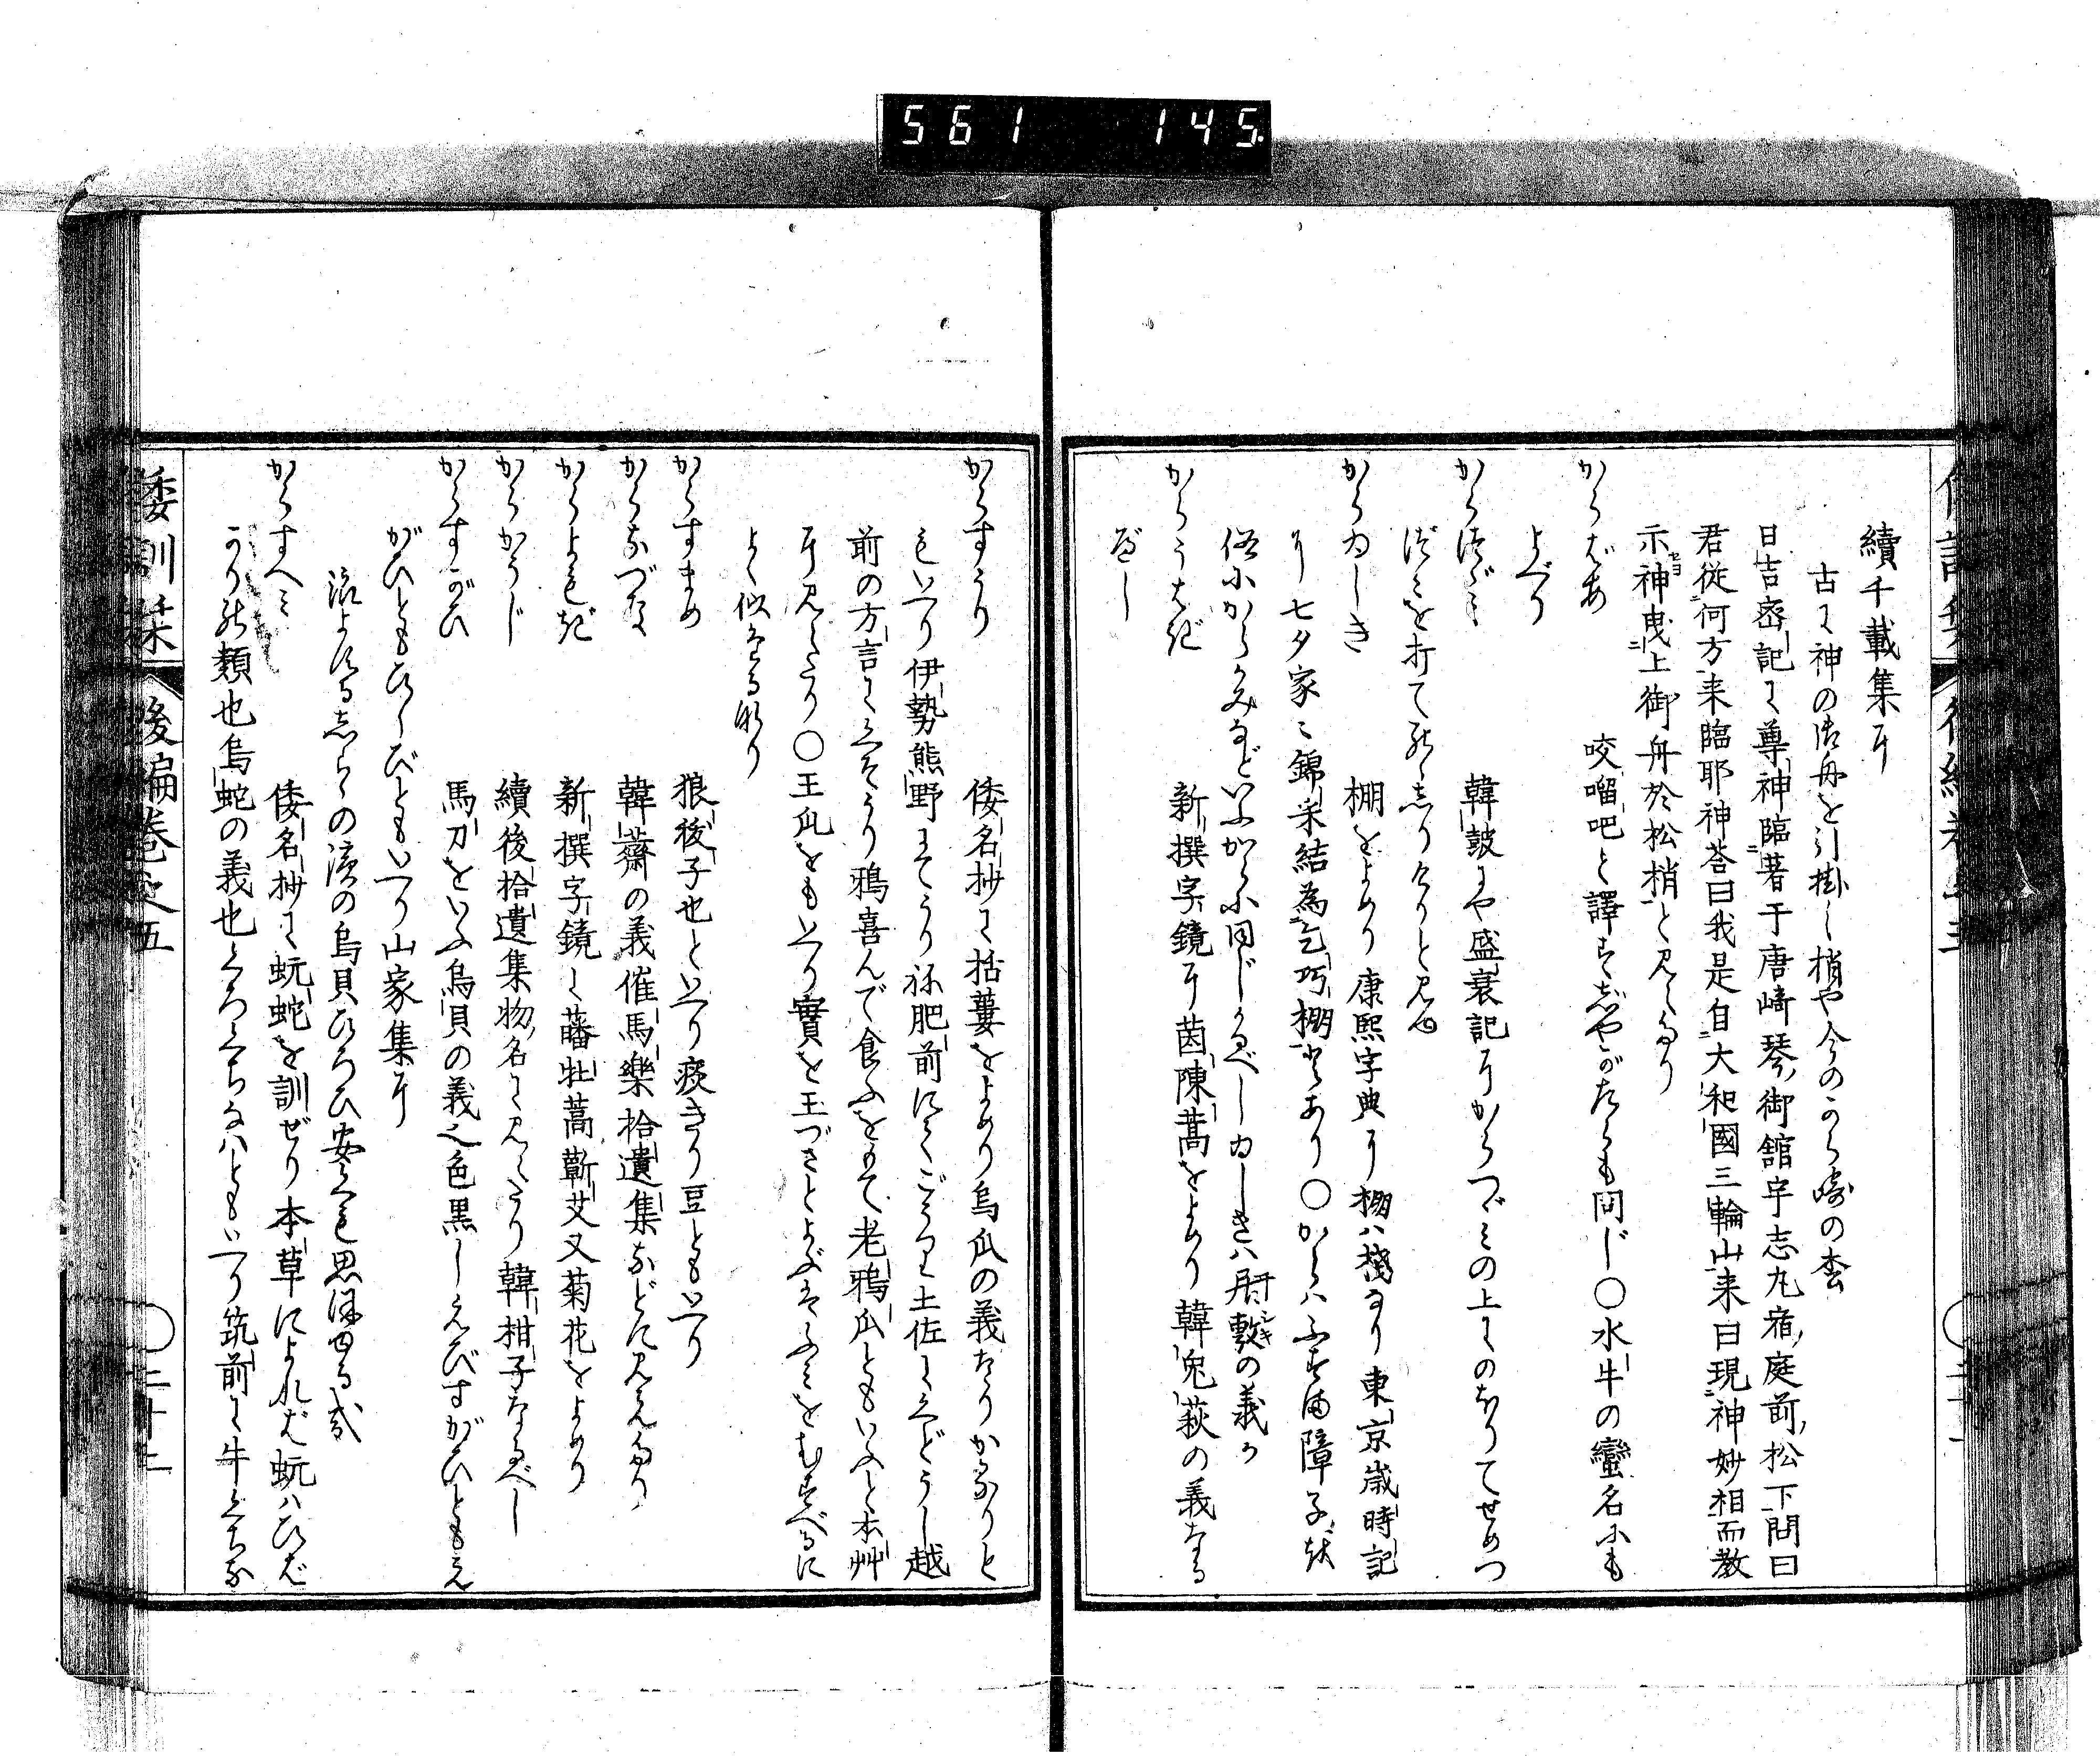 561 145.
續千載集に
古に神の御舟を引掛し梢や今のから崎の松
日吉密記に尊神臨著于唐崎琴御舘宇志丸宿庭前松下問曰
君従何方来臨耶神荅曰我是自大和國三輪山来曰現神妙相而教
示神曳上御舟於松梢と見えたり
からばあ 咬𠺕吧と譯すじやがたらも同じ〇水牛の蠻名にも
よべり
からつゞみ 韓皷にや盛衰記にからつゞみの上にのぼりてせめつ
づみを打て
からゐしき 棚をよめり康熙字典に棚ハ棧なり東京歳時記
に七夕家々錦采結為乞巧棚とあり〇からハふすま障子を
俗にからかみなどいふからに同じかるべしゐしきハ居敷の義か
からうはぎ 新撰字鏡に茵陳蒿をよめり韓兎萩の義なる
べし
からすうり 倭名抄に括蔞をよめり烏瓜の義なりからうりと
もいへり伊勢熊野にてうり祢肥前にてごうり土佐にて
前の方言に 鴉喜んで食ふをもて老鴉瓜ともいふと本艸
に見えたり〇王瓜をもいへり實を玉づさとよぶはふみをむすべるに
よく似たる故り
からすまめ 狼後子也といへり痰きり豆ともいへり
からなづな 韓薺の義催馬樂拾遺集などに見えたり
からよもぎ 新撰字鏡に藩牡蒿蘄艾又菊花をよめり
からかうじ 續後拾遺集物名に見えたり韓柑子なるべし
からすがひ 馬刀をいふ烏貝の義也色黒しえびすがひともえ
がひともひらびともいへり山家集に
浪よするしらゝの濱の烏貝ひろひ安くも思ほゆる哉
からすへミ 倭名抄に蚖蛇を訓ぜり本草によれば蚖ハひば
かりの類也烏蛇の義也くろくちなハともいへり筑前に牛くちな
倭訓栞 後編巻之五 〇二十三